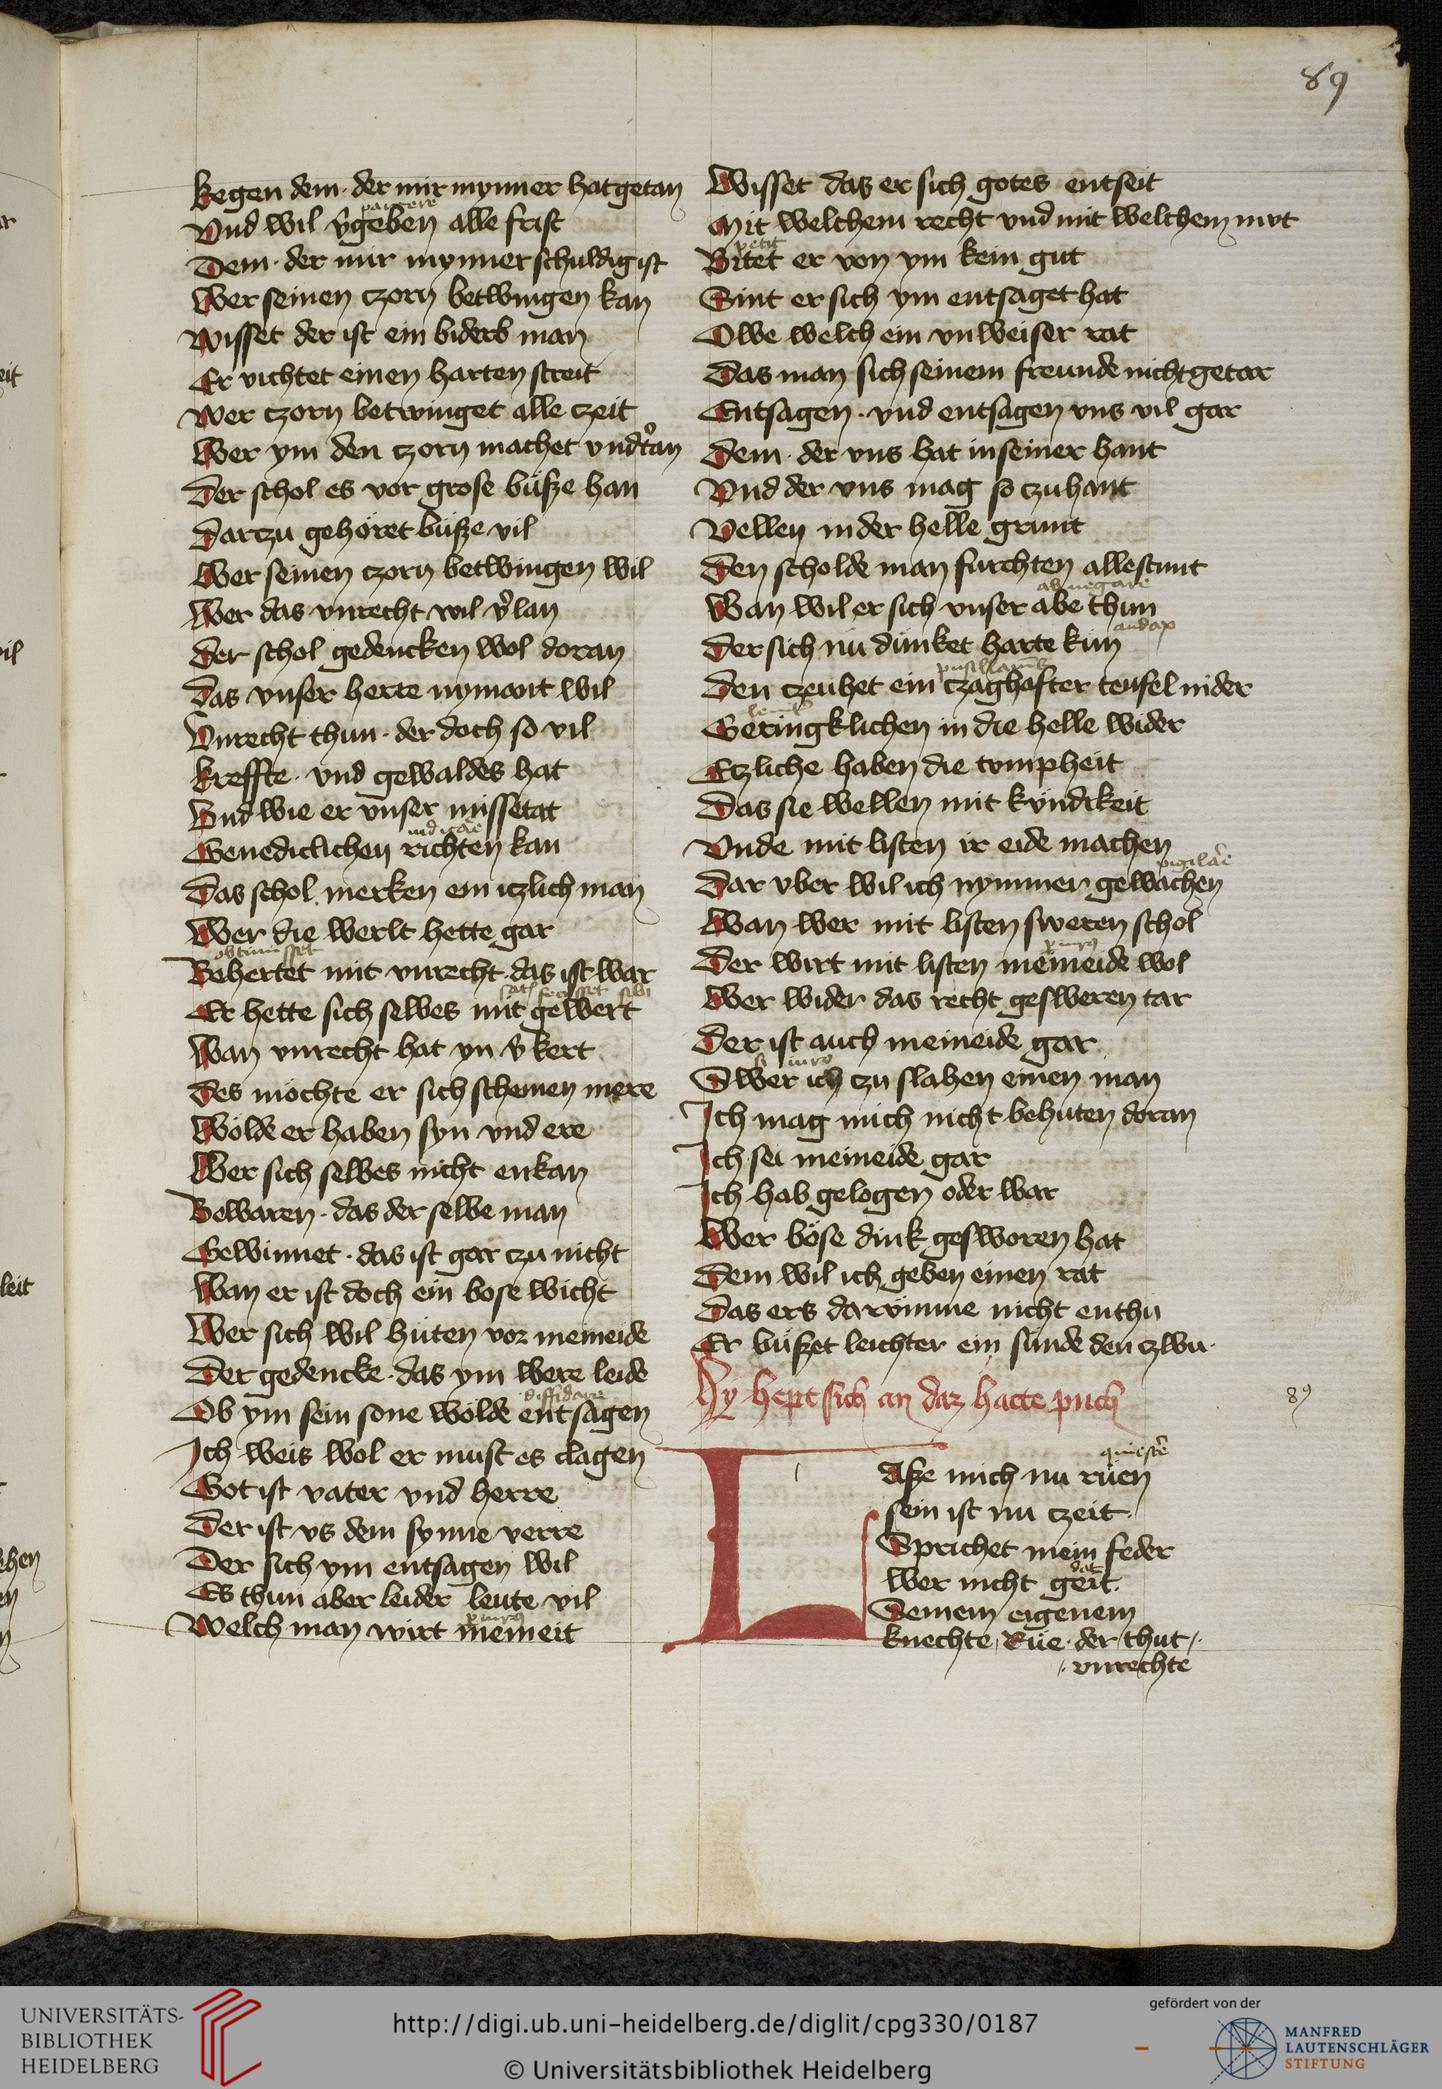 89
kegen dem · der mir mynner hat getan
parcere
Vnd wil v̉geben alle frist
Dem · der mir mynner schuldig ist
Wer seinen czorn betwingen kan
Wisset der ist ein biderb man
Er vichtet einen harten streit
Wer czorn betwinget alle czeit
Wer ym den czorn machet vndt̉an
Der schol es vor grose büsze han
Darzu gehöret büsze vil
Wer seinen czorn betwingen wil
Wer das vnrecht wil v̉lan
Der schol gedencken wol doran
Das vnser herre nymant wil
Vnrecht thun · der doch so vil
kreffte · vnd gewaldes hat
Vnd wie er vnser missetat
Genediclichen richten kan
Das schol merken ein iczlich man
Wer die werlt hette gar
obtinuisset
Behertet mit vnrecht · das ist war
Er hette sich selbes mit gewert
Wan vnrecht hat yn v̉kert
des möchte er sich schemen mere
Wölde er haben syn vnd ere
Wer sich selbes nicht enkan
Bewaren · das der selbe man
Gewinnet · das ist gar czu nicht
Wan er ist doch ein bose wicht
Wer sich wil hüten vor meineide
Der gedencke · das ym were leide
diffidare
Ob ym sein sone wölde entsagen
Ich weis wol er must es clagen
Got ist vater vnd herre
Der ist vs dem synne verre
Der sich ym entsagen wil
Es thun aber leider leute vil
Welch man wirt meineit
Wisset das er sich gotes entseit
Mit welchem recht vnd mit welchem mvt
petit
Bitet er von ym kein gut
Sint er sich ym entsaget hat
Owe welch ein vnweiser rat
Das man sich seinem freunde nicht getar
Entsagen · vnd entsagen vns vil gar
Dem · der vns hat in seiner hant
Vnd der vns mag so czuhant
Vellen in der helle grunt
Den scholde man fürchten allestunt
abnegare
Wan wil er sich vnser abe thun
audax
Der sich nü dünket harte kün
Den czeuhet ein czaghafter teufel nider
Geringklichen in die helle wider
Etzliche haben die tompheit
Das sie wellen mit kündikeit
Vnde mit listen ir eide machen
Dar vber wil ich nymmer gewachen
Wan wer mit listen sweren schol
Der wirt mit listen meineide wol
Wer wider das recht gesweren tar
Der ist auch meineide gar
Swer ich czu slahen einen man
Ich mag mich nicht behüten doran
Ich sei meineide gar
Ich hab gelogen oder war
Wer böse dink gesworen hat
Dem wil ich geben einen rat
Das ers darvmme nicht enthü
Er büszet leichter ein sünde den czwu ·
Hy hept sich an daz hatte puch
89
Lasze mich nu rüen
sein ist nu czeit ·
Sprichet mein feder
dat
Wer nicht geit ·
Seinem eigenem
knechte rüe · der thut
vnrechte
UNIVERSITÄTS-
BIBLIOTHEK
HEIDELBERG
http://digi.ub.uni-heidelberg.de/diglit/cpg330/0187
© Universitätsbibliothek Heidelberg
gefördert von der
MANFRED
LAUTENSCHLÄGER
STIFTUNG